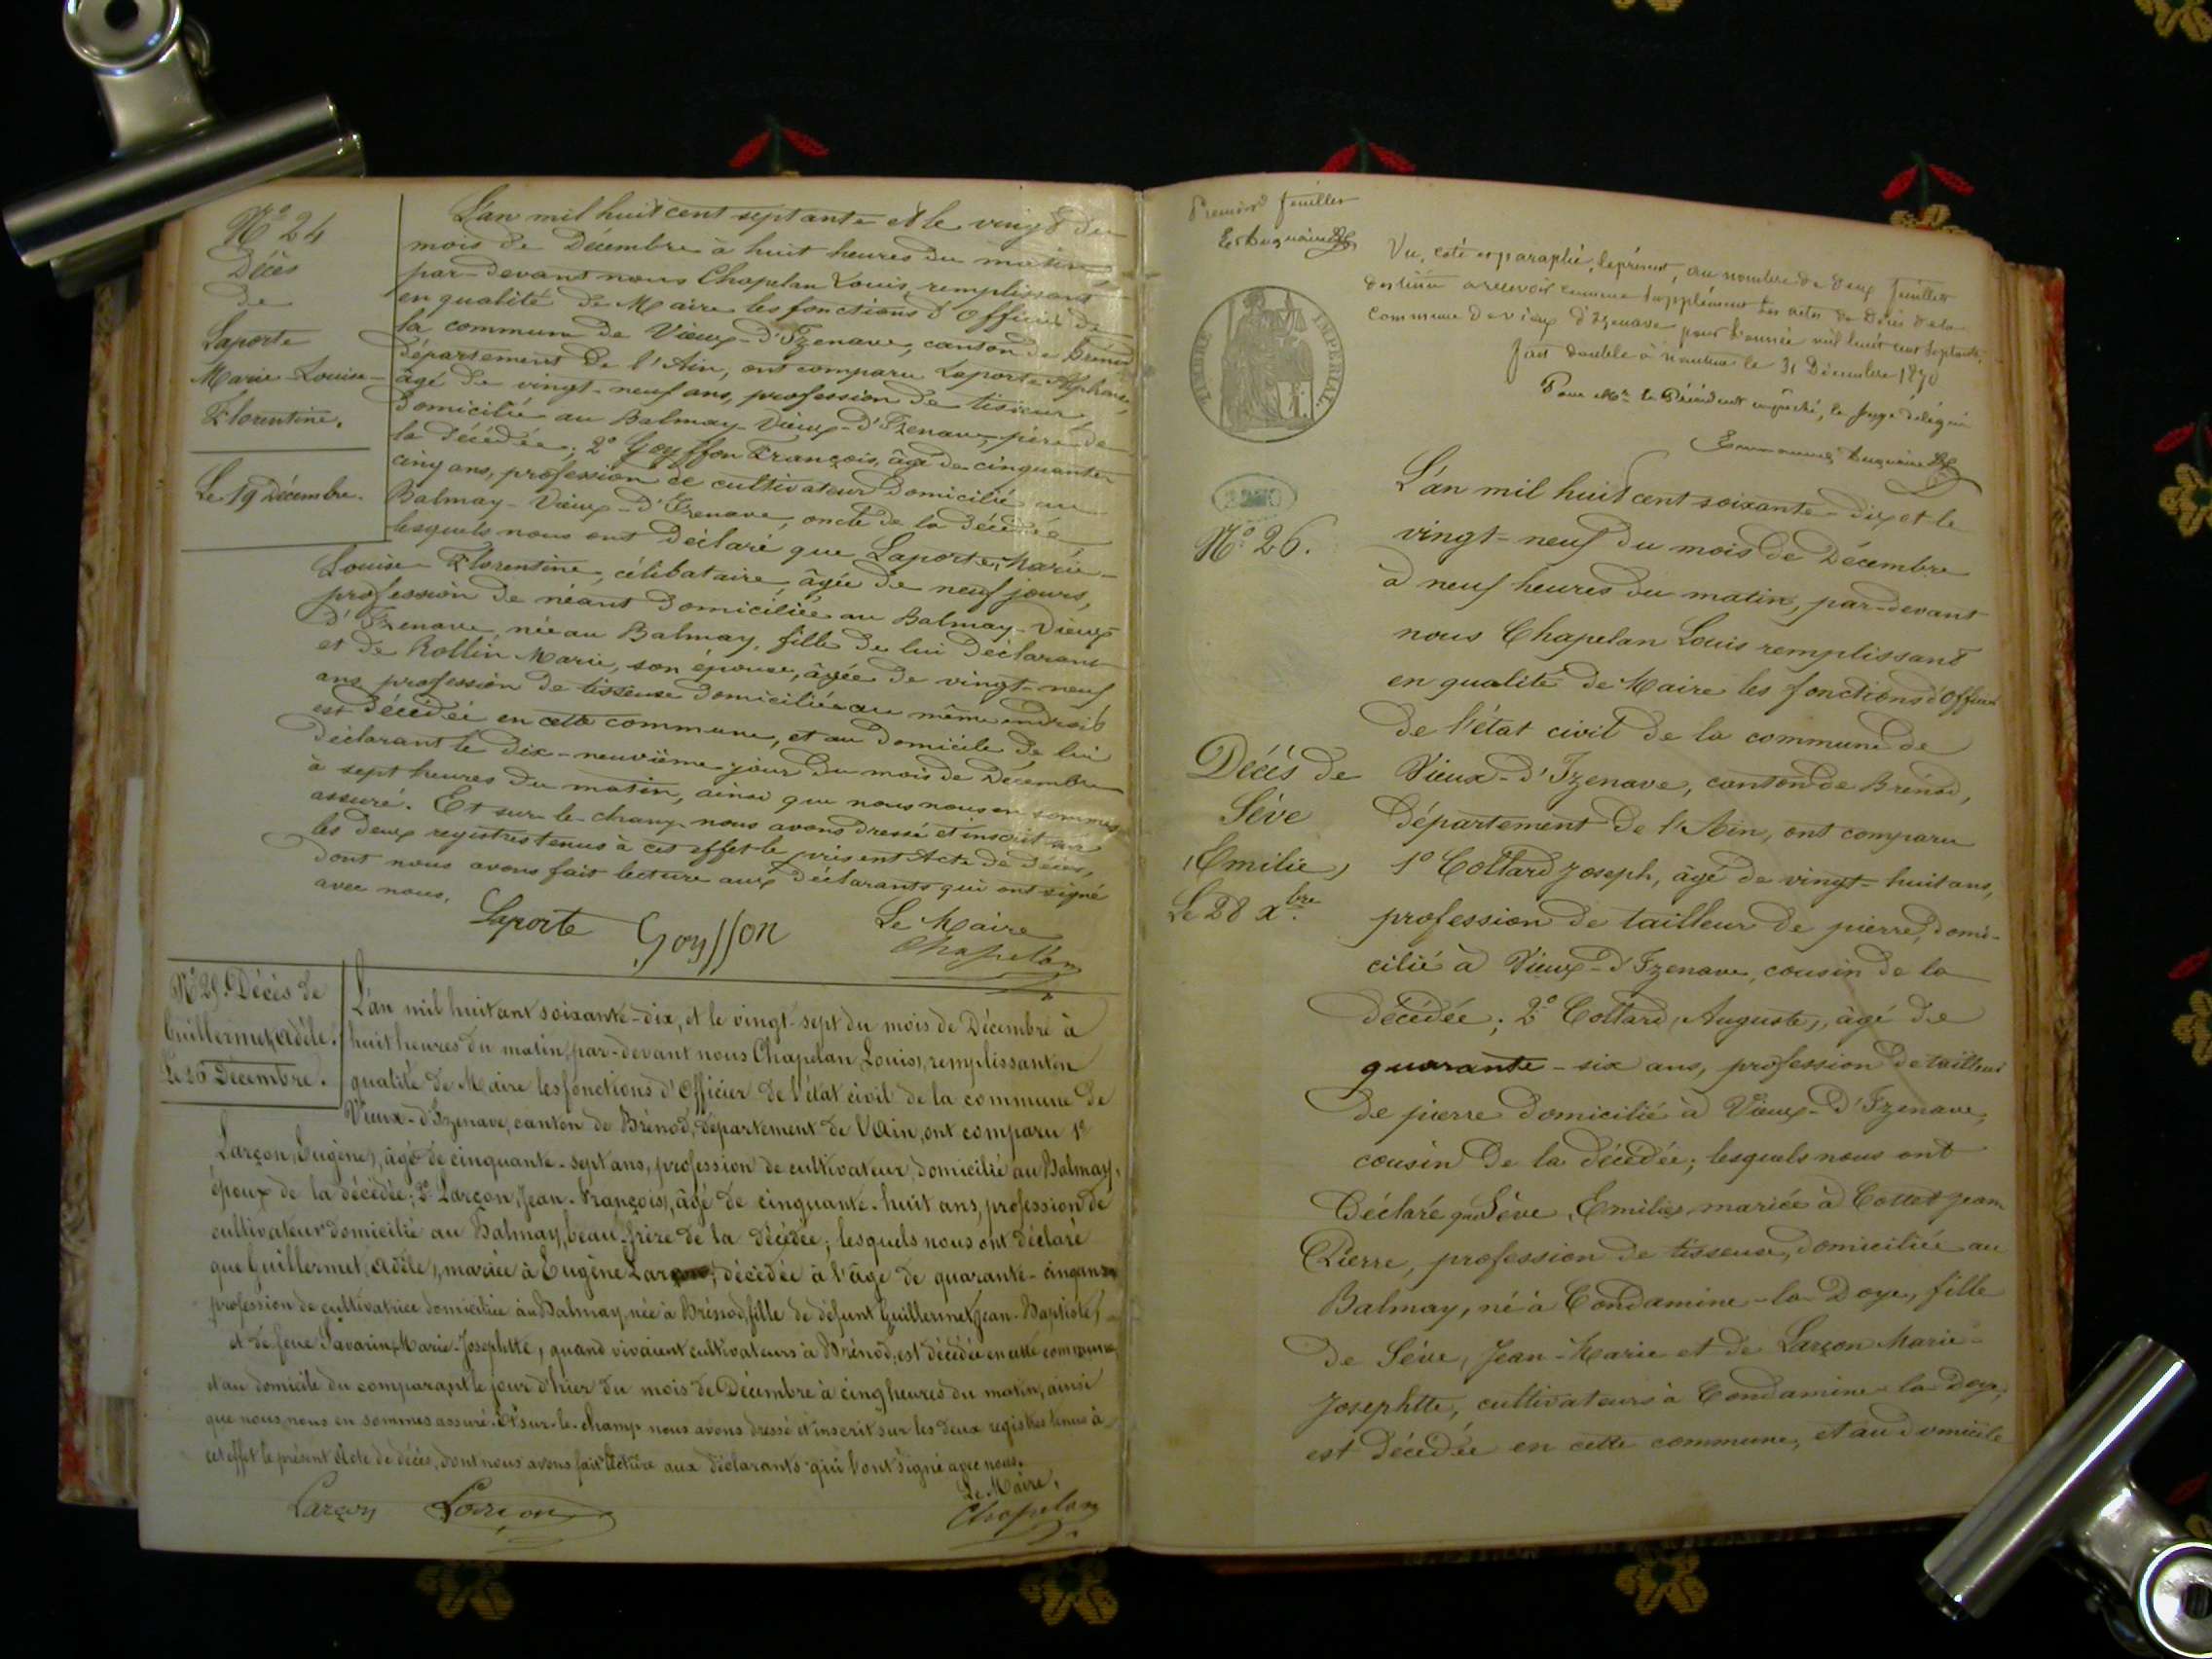 Nº 24
Décès
de
Laporte
Marie-Louise-
Florentine.
Le 19 Décembre.
L'an mil huit cent septante et le vingt du
mois de Décembre à huit heures du matin
par-devant nous Chapelan Louis, remplissant
en qualité de Maire les fonctions d'Officier de
la commune de Vieux-d'Izenave, canton de Brénod
département de l'Ain, ont comparu Laporte Alphonse,
âgé de vingt-neuf ans, profession de tisseur
domicilié au Balmay-Vieux-d'Izenave, père de
la décédée; 2º Goyffon François, âgé de cinquante-
cinq ans, profession de cultivateur domicilié au
Balmay-Vieux-d'Izenave, oncle de la décédée
lesquels nous ont déclaré que Laporte, Marie-
Louise Florentine, célibataire, âgée de neuf jours,
profession de néant domiciliée au Balmay-Vieux
d'Izenave, née au Balmay, fille de lui déclarant
et de Rollin Marie, son épouse, âgée de vingt-neuf
ans profession de tisseuse domiciliée au même endroit
est décédée en cette commune, et au domicile de lui
déclarant le dix-neuvième jour du mois de Décembre
à sept heures du matin, ainsi que nous nous en sommes
assuré. Et sur-le-champ nous avons dressé et inscrit sur
les deux registres tenus à cet effet le présent Acte de décès,
dont nous avons fait lecture aux déclarants qui ont signé
avec nous.
Laporte Goyffon Le Maire
Chapelan
Nº 25. Décès de
Guillermet, Adèle.
Le 26 Décembre.
L'an mil huit cent soixante-dix, et le vingt-sept du mois de Décembre à
huit heures du matin, par-devant nous Chapelan Louis, remplissant en
qualité de Maire les fonctions d'Officier de l'état civil de la commune de
Vieux-d'Izenave, canton de Brénod, département de l'Ain, ont comparu 1º
Larçon, Eugène, âgé de cinquante-sept ans, profession de cultivateur, domicilié au Balmay,
époux de la décédée; 2º Larçon, Jean-François, âgé de cinquante-huit ans, profession de
cultivateur domicilié au Balmay, beau-frère de la décédée; lesquels nous ont déclaré
que Guillermet, (Adèle), mariée à Eugène Larçon, décédée à l'âge de quarante-cinq ans
profession de cultivatrice domiciliée au Balmay, née à Brénod, fille de défunt Guillermet, Jean-Baptiste,
et de feue Savarin, Marie-Josephtte, quand vivaient cultivateurs à Brénod, est décédée en cette commune,
et au domicile du comparant le jour d'hier du mois de Décembre à cinq heures du matin, ainsi
que nous nous en sommes assuré. Et sur-le-champ nous avons dressé et inscrit sur les deux registres tenus à
cet effet le présent Acte de décès, dont nous avons fait lecture aux déclarants qui l'ont signé avec nous.
Le Maire,
Larçon Larçon Chapelan
Premier feuillet
Vu, coté et paraphé, le présent, au nombre de deux feuillets
destiné a recevoir comme supplément les actes de Décès de la
commune de Vieux d'Izenave pour l'année mil huit cent septante.
fait double à Nantua le 31 Décembre 1870
Pour Mr le Président empêché, le Juge délégué
TIMBRE IMPÉRIAL.
Nº 26.
Décès de
Sève
(Emilie)
Le 28 Xbre.
L'an mil huit cent soixante-dix et le
vingt-neuf du mois de Décembre
à neuf heures du matin, par-devant
nous Chapelan Louis remplissant
en qualité de Maire les fonctions d'Officier
de l'état civil de la commune de
Vieux-d'Izenave, canton de Brénod,
département de l'Ain, ont comparu
1º Collard Joseph, âgé de vingt-huit ans,
profession de tailleur de pierre, domi-
cilié à Vieux-d'Izenave, cousin de la
décédée; 2º Collard, Auguste, âgé de
quarante-six ans, profession de tailleur
de pierre domicilié à Vieux-d'Izenave,
cousin de la décédée; lesquels nous ont
déclaré que Sève, Emilie, mariée à Collet Jean
Pierre, profession de tisseuse, domiciliée au
Balmay, né à Condamine-la-Doye, fille
de Sève, Jean-Marie et de Larçon Marie-
Josephtte, cultivateurs à Condamine-la-Doye,
est décédée en cette commune, et au domicile